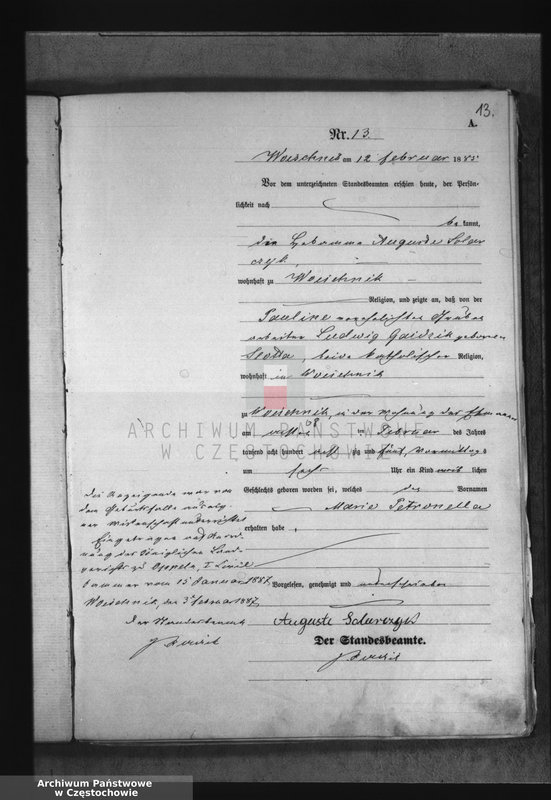 13.
A.
Nr. 13.
Woischnik am 12 Februar 1885
Vor dem unterzeichneten Standesbeamten erschien heute, der Persön-
lichkeit nach
be kannt,
die Hebamme Auguste Solar
czyk,
wohnhaft zu Woischnik
Religion, und zeigte an, daß von der
Pauline verehelichten Gruben
arbeiter Ludwig Gaidzik geborene
beide katholischer Religion,
wohnhaft in Woischnik
zu Woischnik, in der Wohnung des Ehemannes
am achten Februar des Jahres
tausend acht hundert acht zig und fünf, Vormittags
um Uhr ein Kind weib lichen
Geschlechts geboren worden sei, welches die Vornamen
Marie Petronella
erhalten habe,
Die Anzeigende war von
dem Geburtsfalle aus eig
ner Wissenschaft unterrichtet
Eingetragen auf Anord-
nung des Königlichen Land-
gerichts zu Oppeln, I. Civil
kammer vom 15 Januar 1887.
Woischnik, den 3 Februar 1887.
Der Standesbeamte
Vorgelesen, genehmigt und unterschrieben
Auguste
Der Standesbeamte.
ARCHIWUM PAŃSTWOWE
W CZĘSTOCHOWIE
Archiwum Państwowe
w Częstochowie